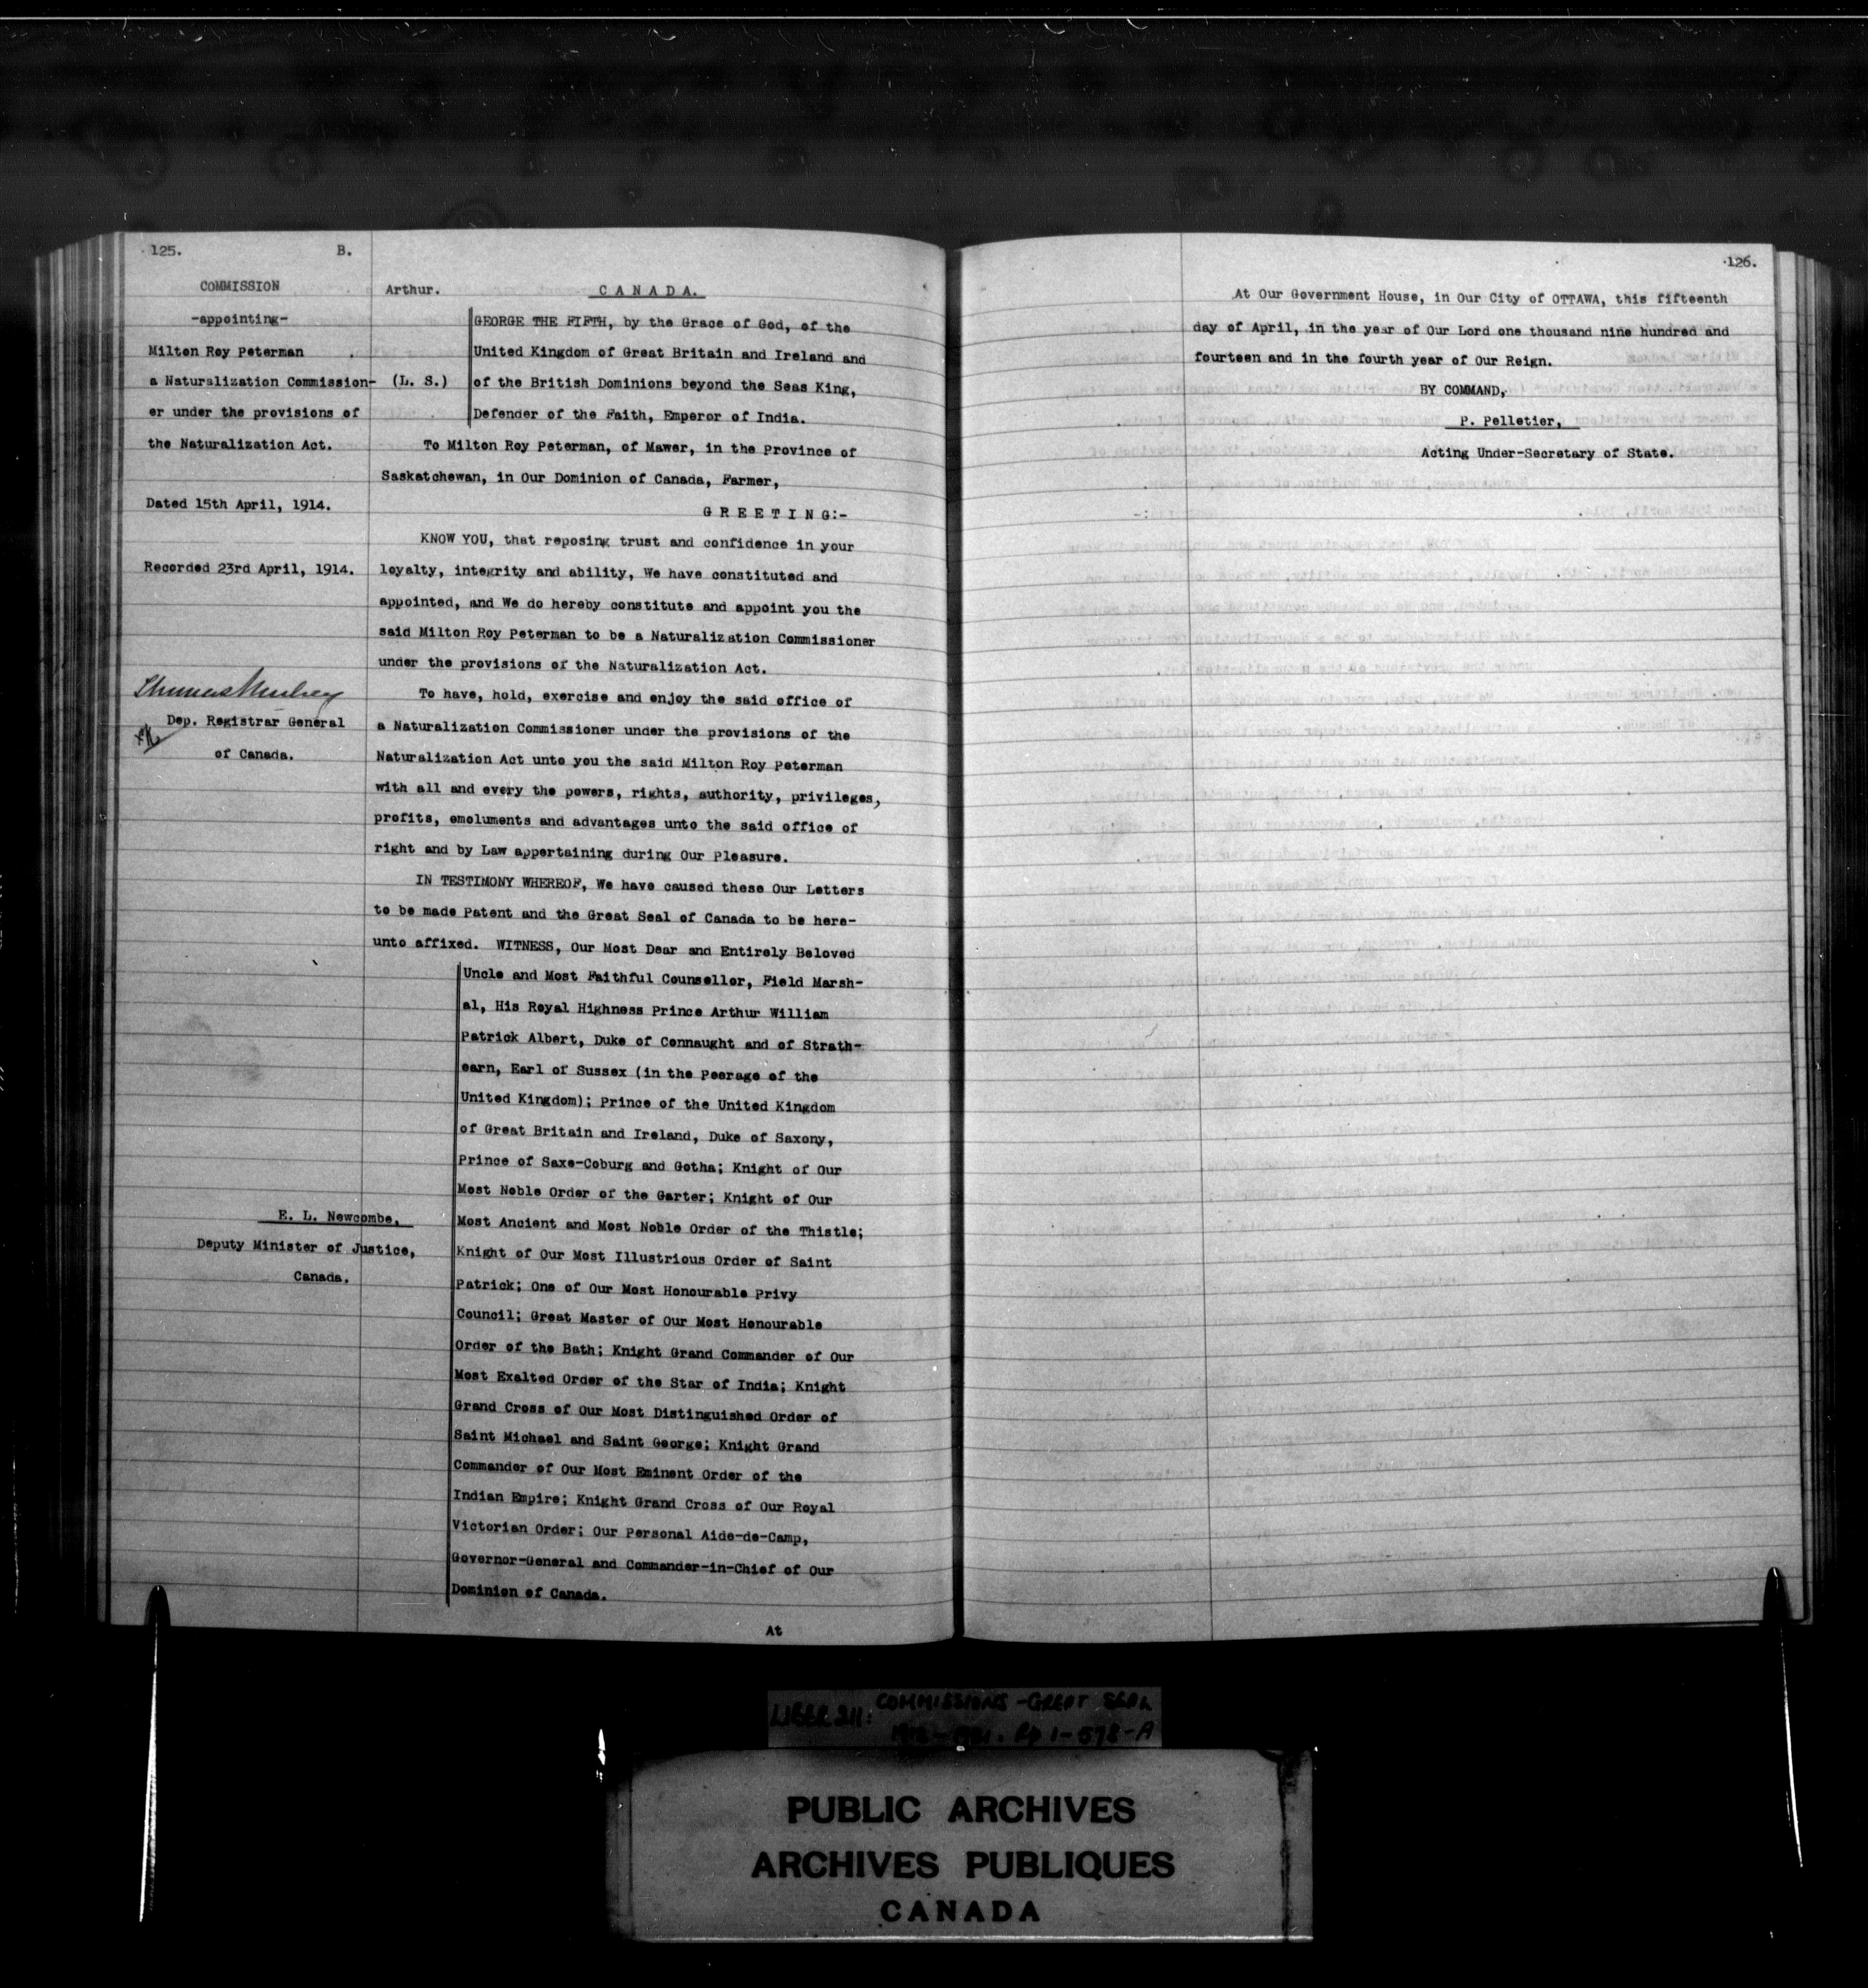 125.
B.
COMMISSION
-appointing-
Milton Roy Peterman
a Naturalization Commission-
er under the provisions of
the Naturalization Act.
Dated 15th April, 1914.
Recorded 23rd April, 1914.
Thomas Mulvey
Dep. Registrar General
of Canada.
E. L. Newcombe,
Deputy Minister of Justice,
Canada.
Arthur.
C A N A D A.
(L. S.)
GEORGE THE FIFTH, by the Grace of God, of the
United Kingdom of Great Britain and Ireland and
of the British Dominions beyond the Seas King,
Defender of the Faith, Emperor of India.
To Milton Roy Peterman, of Mawer, in the Province of
Saskatchewan, in Our Dominion of Canada, Farmer,
G R E E T I N G:-
KNOW YOU, that reposing trust and confidence in your
loyalty, integrity and ability, We have constituted and
appointed, and We do hereby constitute and appoint you the
said Milton Roy Peterman to be a Naturalization Commissioner
under the provisions of the Naturalization Act.
To have, hold, exercise and enjoy the said office of
a Naturalization Commissioner under the provisions of the
Naturalization Act unto you the said Milton Roy Peterman
with all and every the powers, rights, authority, privileges,
profits, emoluments and advantages unto the said office of
right and by Law appertaining during Our Pleasure.
IN TESTIMONY WHEREOF, We have caused these Our Letters
to be made Patent and the Great Seal of Canada to be here-
unto affixed. WITNESS, Our Most Dear and Entirely Beloved
Uncle and Most Faithful Counsellor, Field Marsh-
al, His Royal Highness Prince Arthur William
Patrick Albert, Duke of Connaught and of Strath-
earn, Earl of Sussex (in the Peerage of the
United Kingdom); Prince of the United Kingdom
of Great Britain and Ireland, Duke of Saxony,
Prince of Saxe-Coburg and Gotha; Knight of Our
Most Noble Order of the Garter; Knight of Our
Most Ancient and Most Noble Order of the Thistle;
Knight of Our Most Illustrious Order of Saint
Patrick; One of Our Most Honourable Privy
Council; Great Master of Our Most Honourable
Order of the Bath; Knight Grand Commander of Our
Most Exalted Order of the Star of India; Knight
Grand Cross of Our Most Distinguished Order of
Saint Michael and Saint George; Knight Grand
Commander of Our Most Eminent Order of the
Indian Empire; Knight Grand Cross of Our Royal
Victorian Order; Our Personal Aide-de-Camp,
Governor-General and Commander-in-Chief of Our
Dominion of Canada.
At
126.
At Our Government House, in Our City of OTTAWA, this fifteenth
day of April, in the year of Our Lord one thousand nine hundred and
fourteen and in the fourth year of Our Reign.
BY COMMAND,
P. Pelletier,
Acting Under-Secretary of State.
LIBER 211: COMMISSIONS - GREAT SEAL
Pp 1-578-A
PUBLIC ARCHIVES
ARCHIVES PUBLIQUES
CANADA